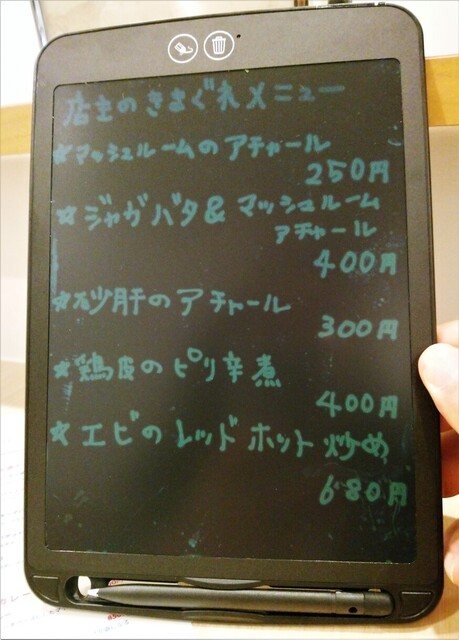 店主のきまぐれメニュー
★マッシュルームのアチャール
250円
★ジャガバタ&マッシュルーム
アチャール
400円
★砂肝のアチャール
300円
★鶏皮のピリ辛煮
400円
★エビのレッドホット炒め
680円